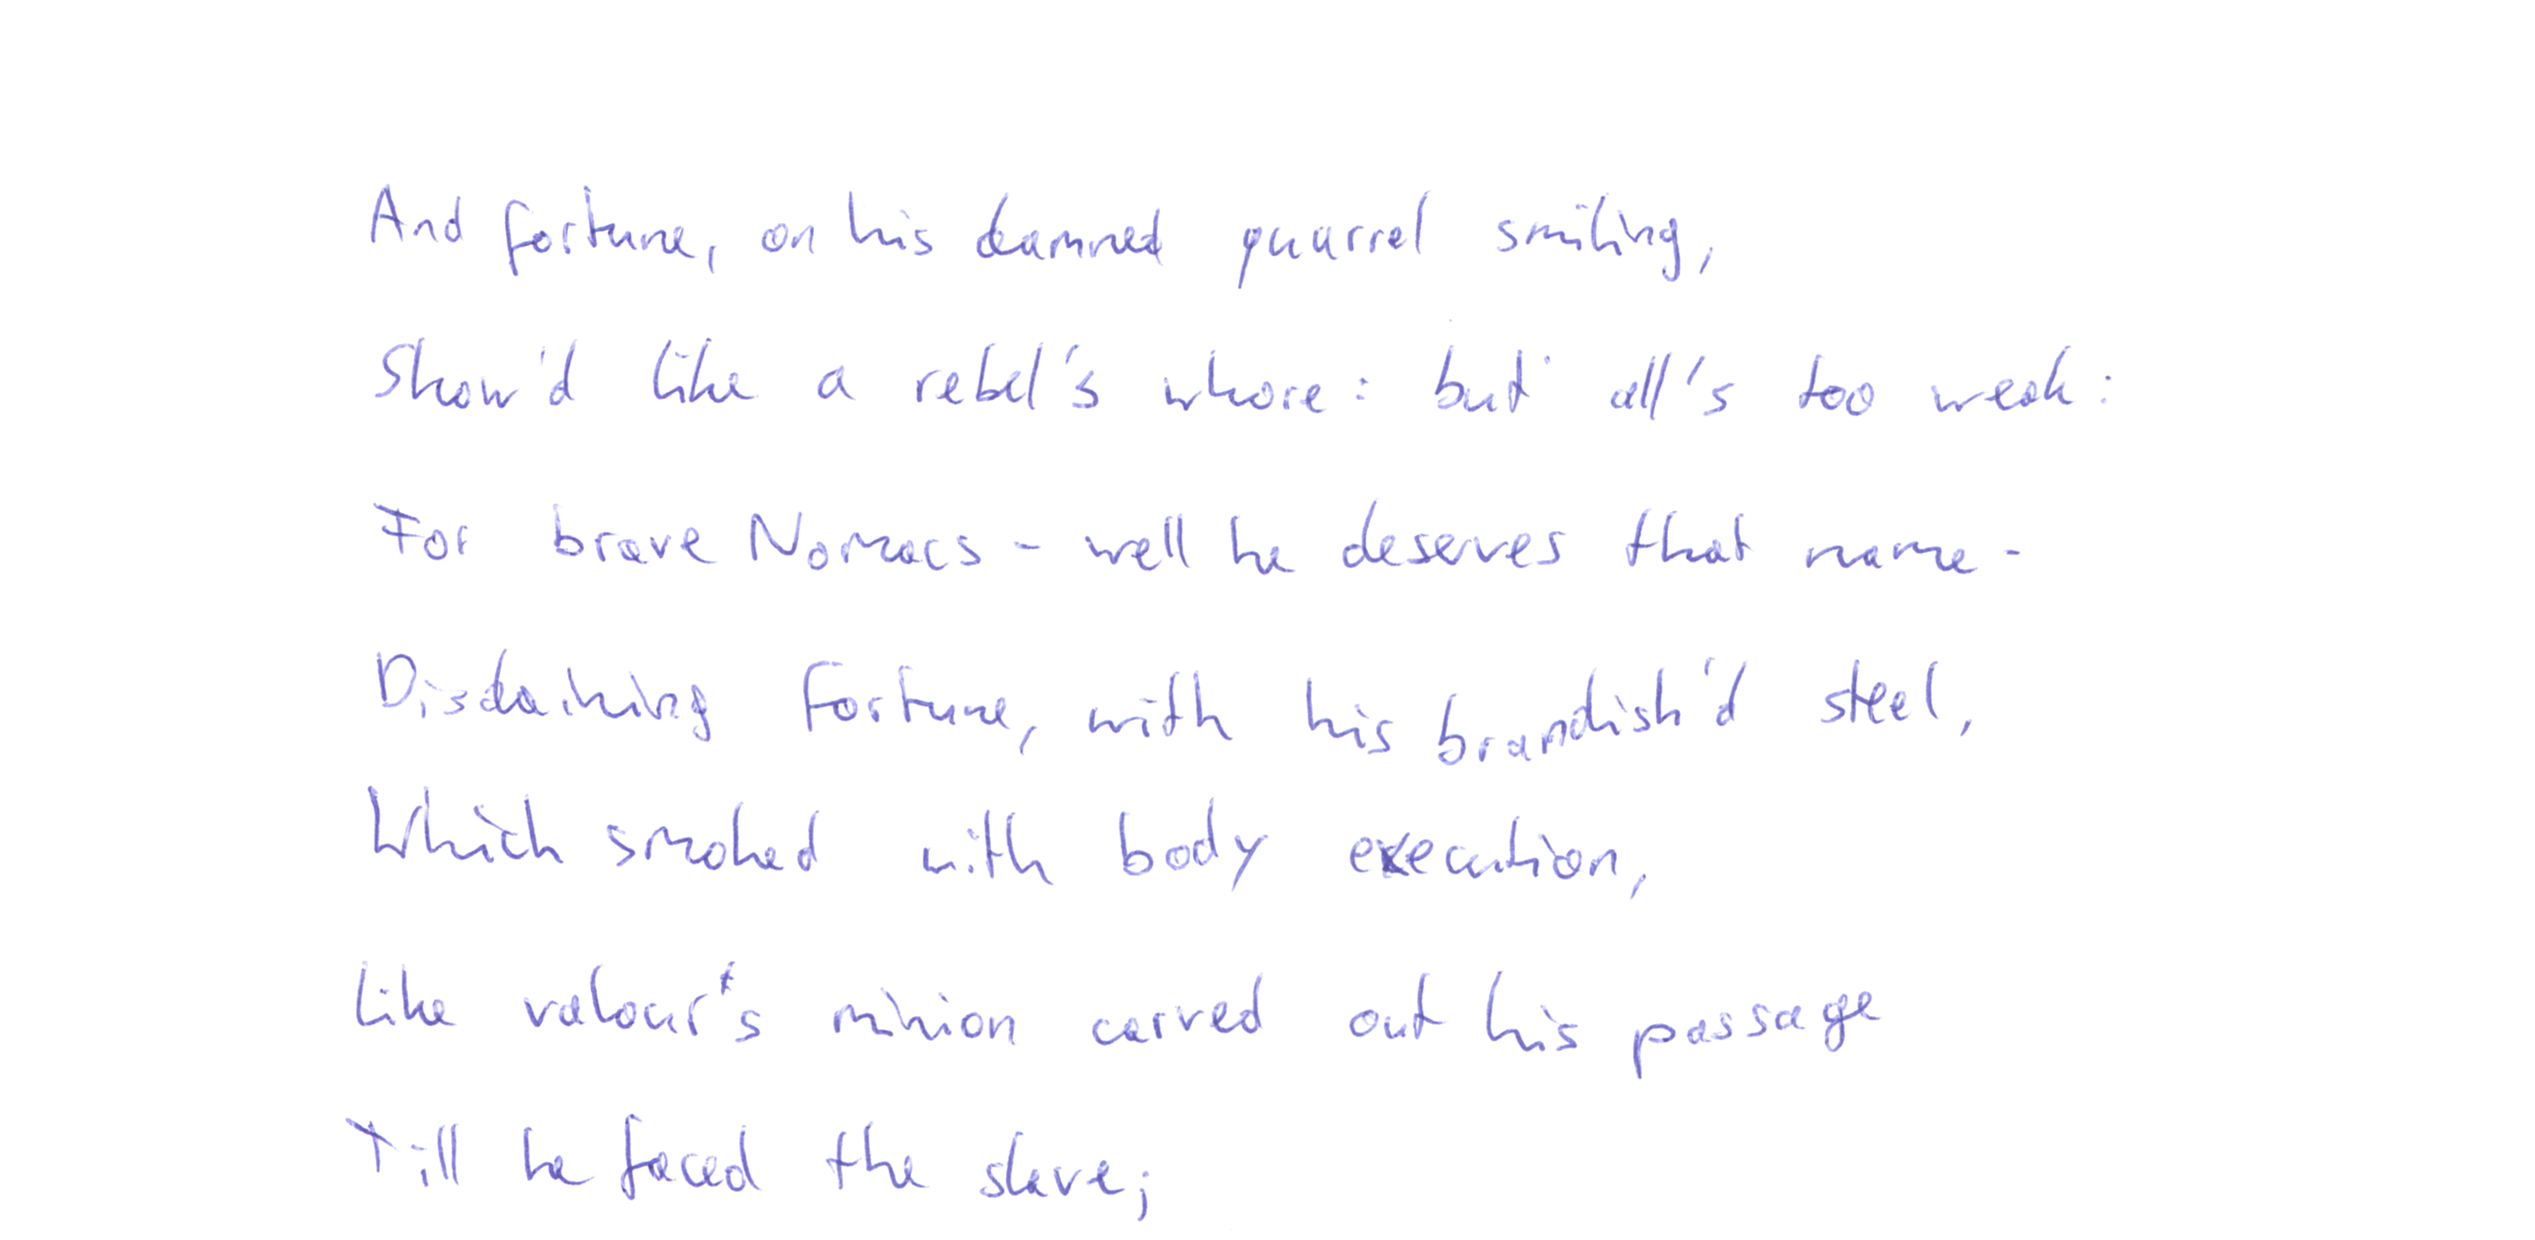 And fortune, on his damned quarrel smiling,
Show'd like a rebel's whore: but all's too weak:
For brave Nomacs - well he deserves that name -
Disdaining Fortune, with his brandish'd steel,
Which smoked with body execution,
Like valour's minion carved out his passage
Till he faced the slave;